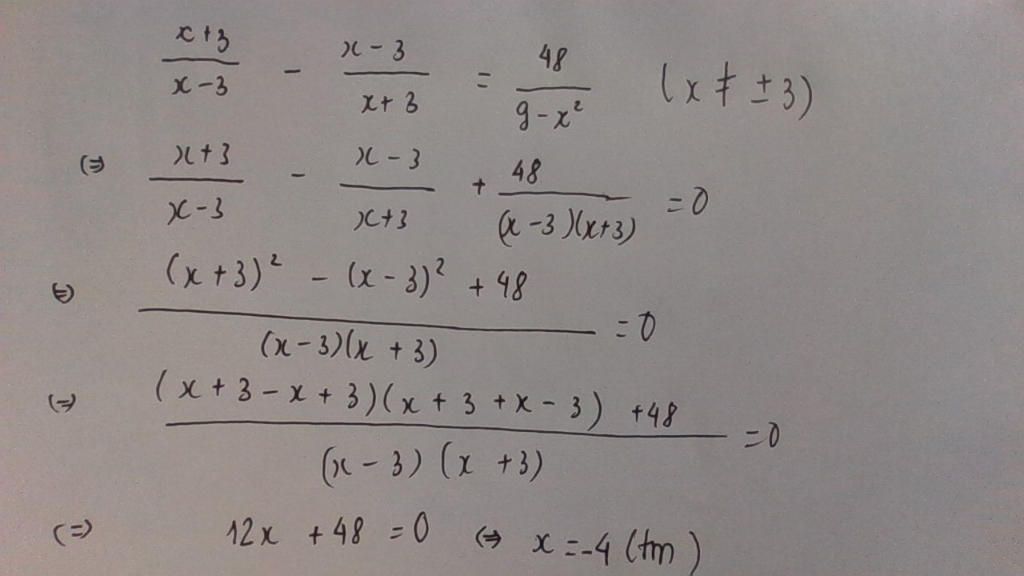 (x+3)/(x-3) - (x-3)/(x+3) = 48/(9-x²) (x ≠ ±3)
(=) (x+3)/(x-3) - (x-3)/(x+3) + 48/((x-3)(x+3)) = 0
(=) ((x+3)² - (x-3)² + 48)/((x-3)(x+3)) = 0
(=) ((x+3-x+3)(x+3+x-3) +48)/((x-3)(x+3)) = 0
(=) 12x + 48 = 0 (=) x = -4 (tm)